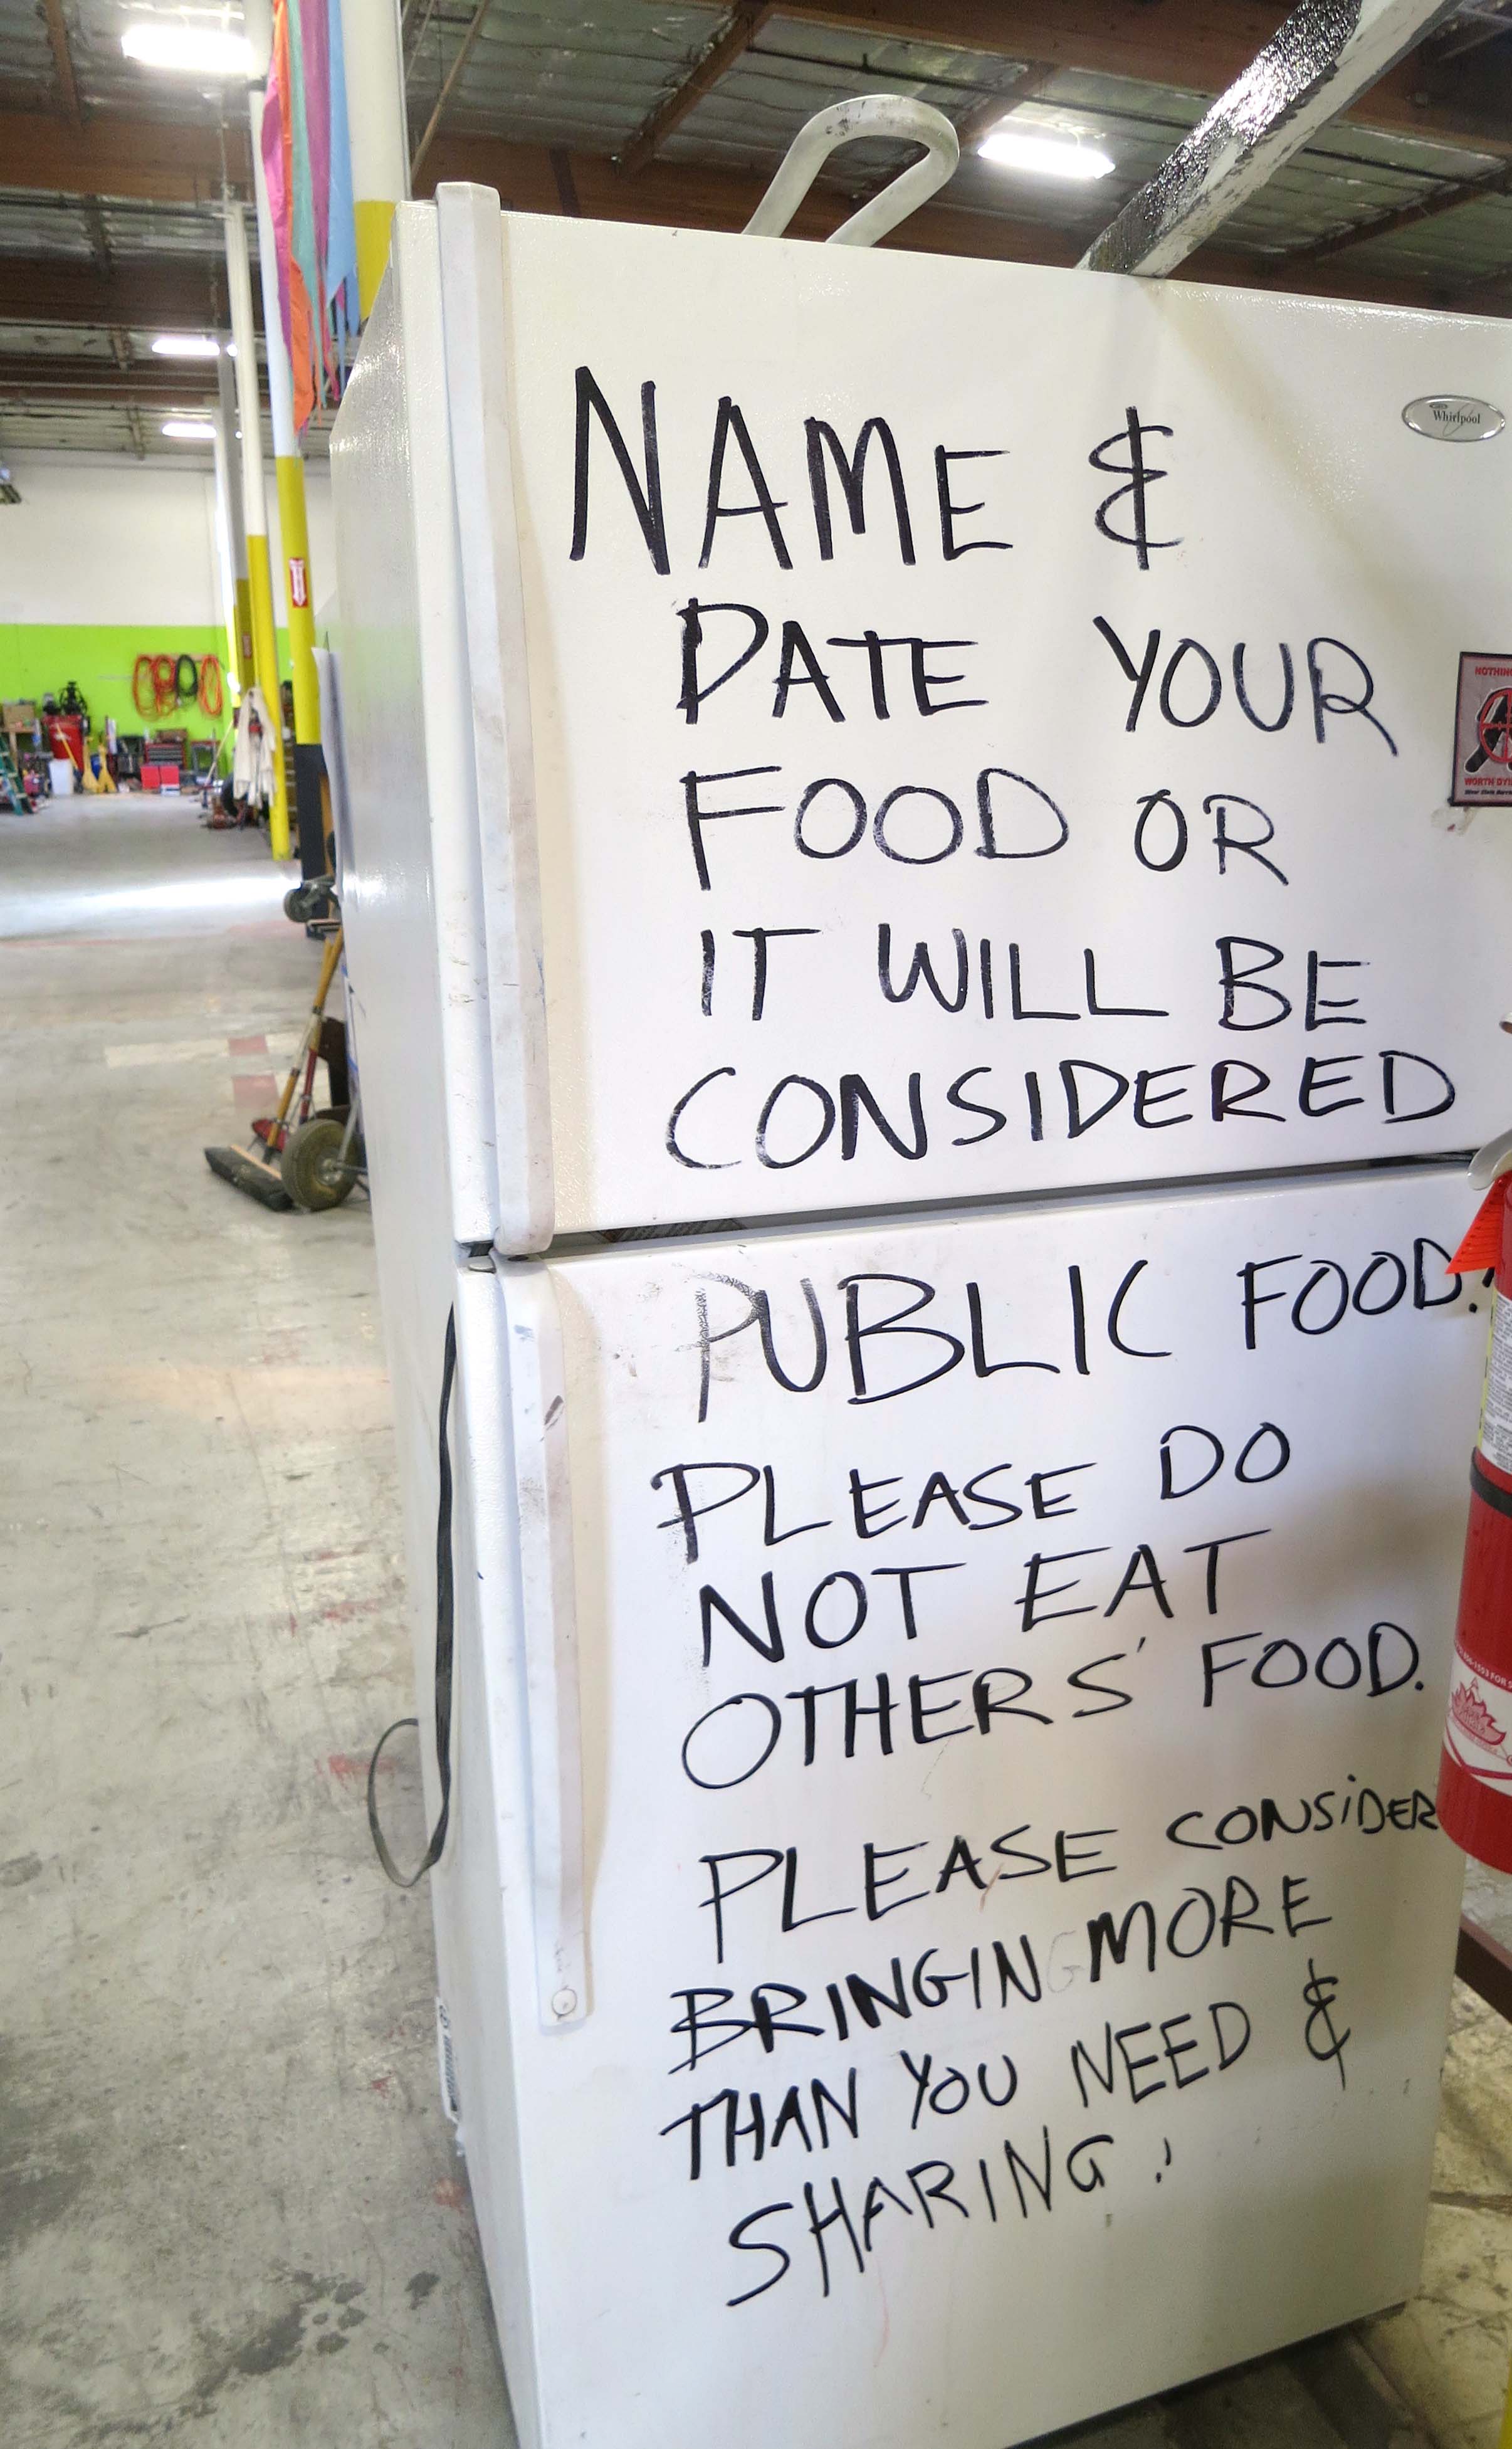 Whirlpool
NAME &
DATE YOUR
FOOD OR
IT WILL BE
CONSIDERED
PUBLIC FOOD!
PLEASE DO
NOT EAT
OTHERS' FOOD.
PLEASE CONSIDER
BRINGING MORE
THAN YOU NEED &
SHARING!
NOTHING